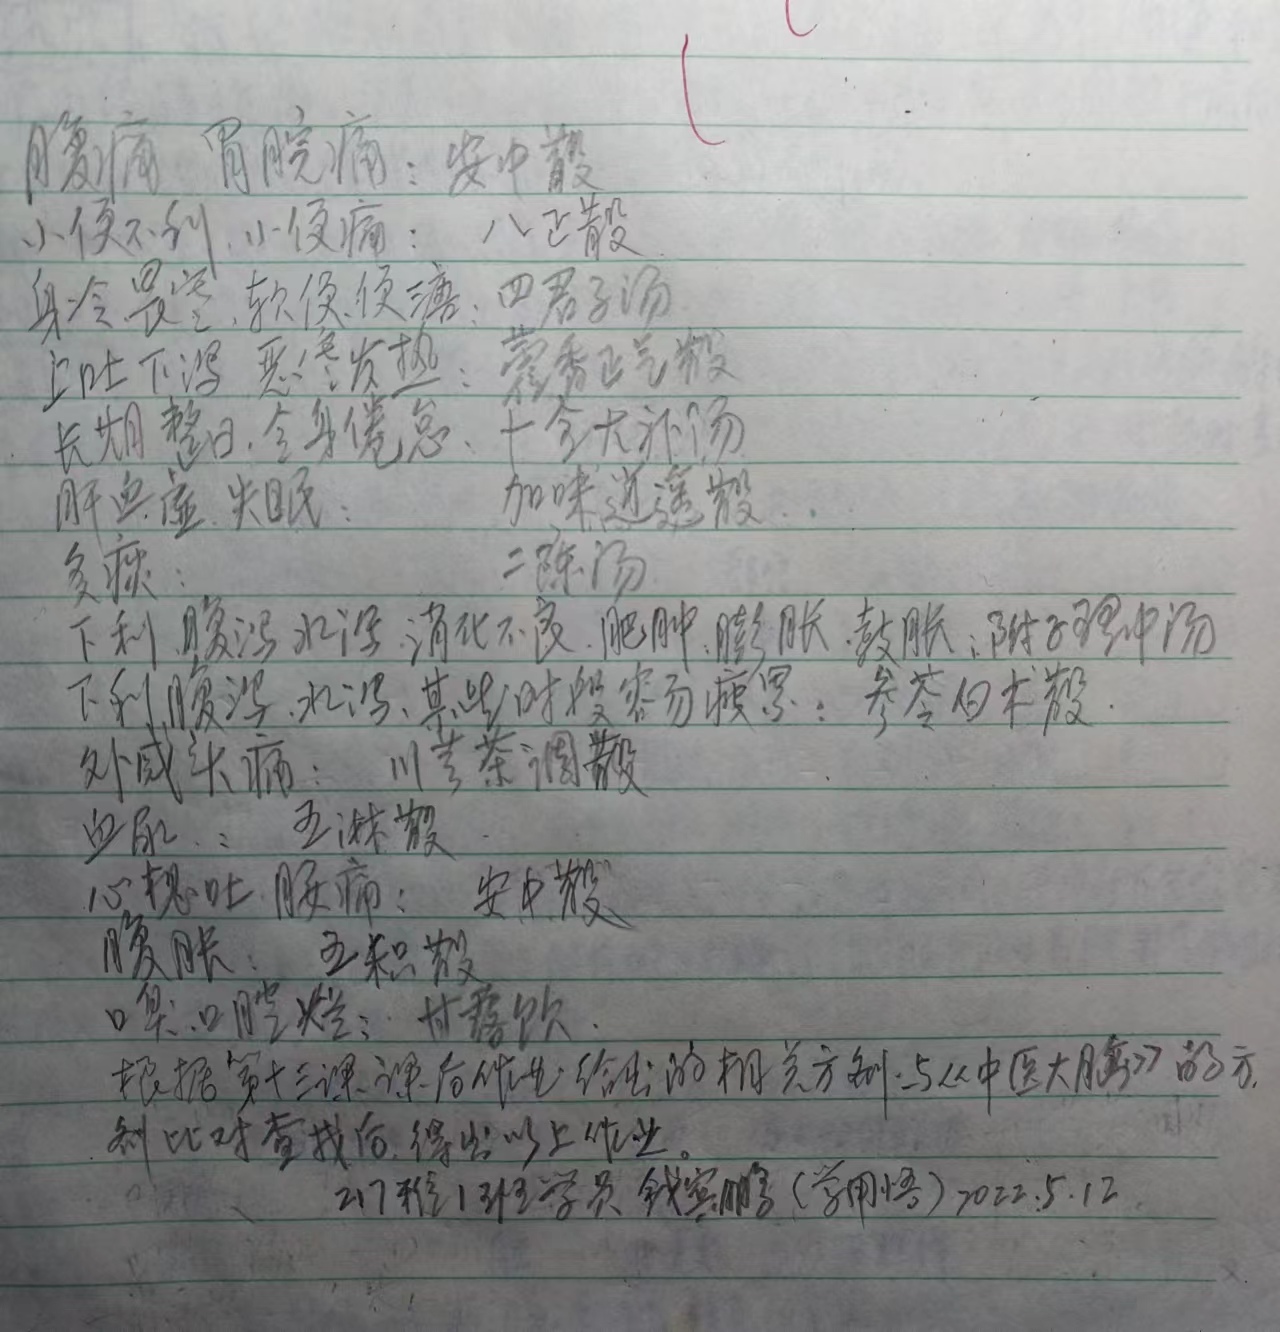 腹痛 胃脘痛：安中散
小便不利、小便痛：八正散
身冷畏寒、软便、便溏：四君子汤
上吐下泻 恶寒发热：藿香正气散
长期整日、全身倦怠：十全大补汤
肝血虚、失眠：加味逍遥散
多痰：二陈汤
下利、腹泻、水泻、消化不良、肥胖、膨胀、鼓胀：附子理中汤
下利、腹泻、水泻、某些时段容易疲累：参苓白术散
外感头痛：川芎茶调散
血尿：五淋散
心 吐 腰痛：安中散
腹胀：五积散
口臭、口腔烂：甘露饮
根据第十三课课后作业给出的相关方剂与《中医大脑》的方
剂比对查找后，得出以上作业。
217 1班学员 钱宾鹏（学用悟）2022.5.12